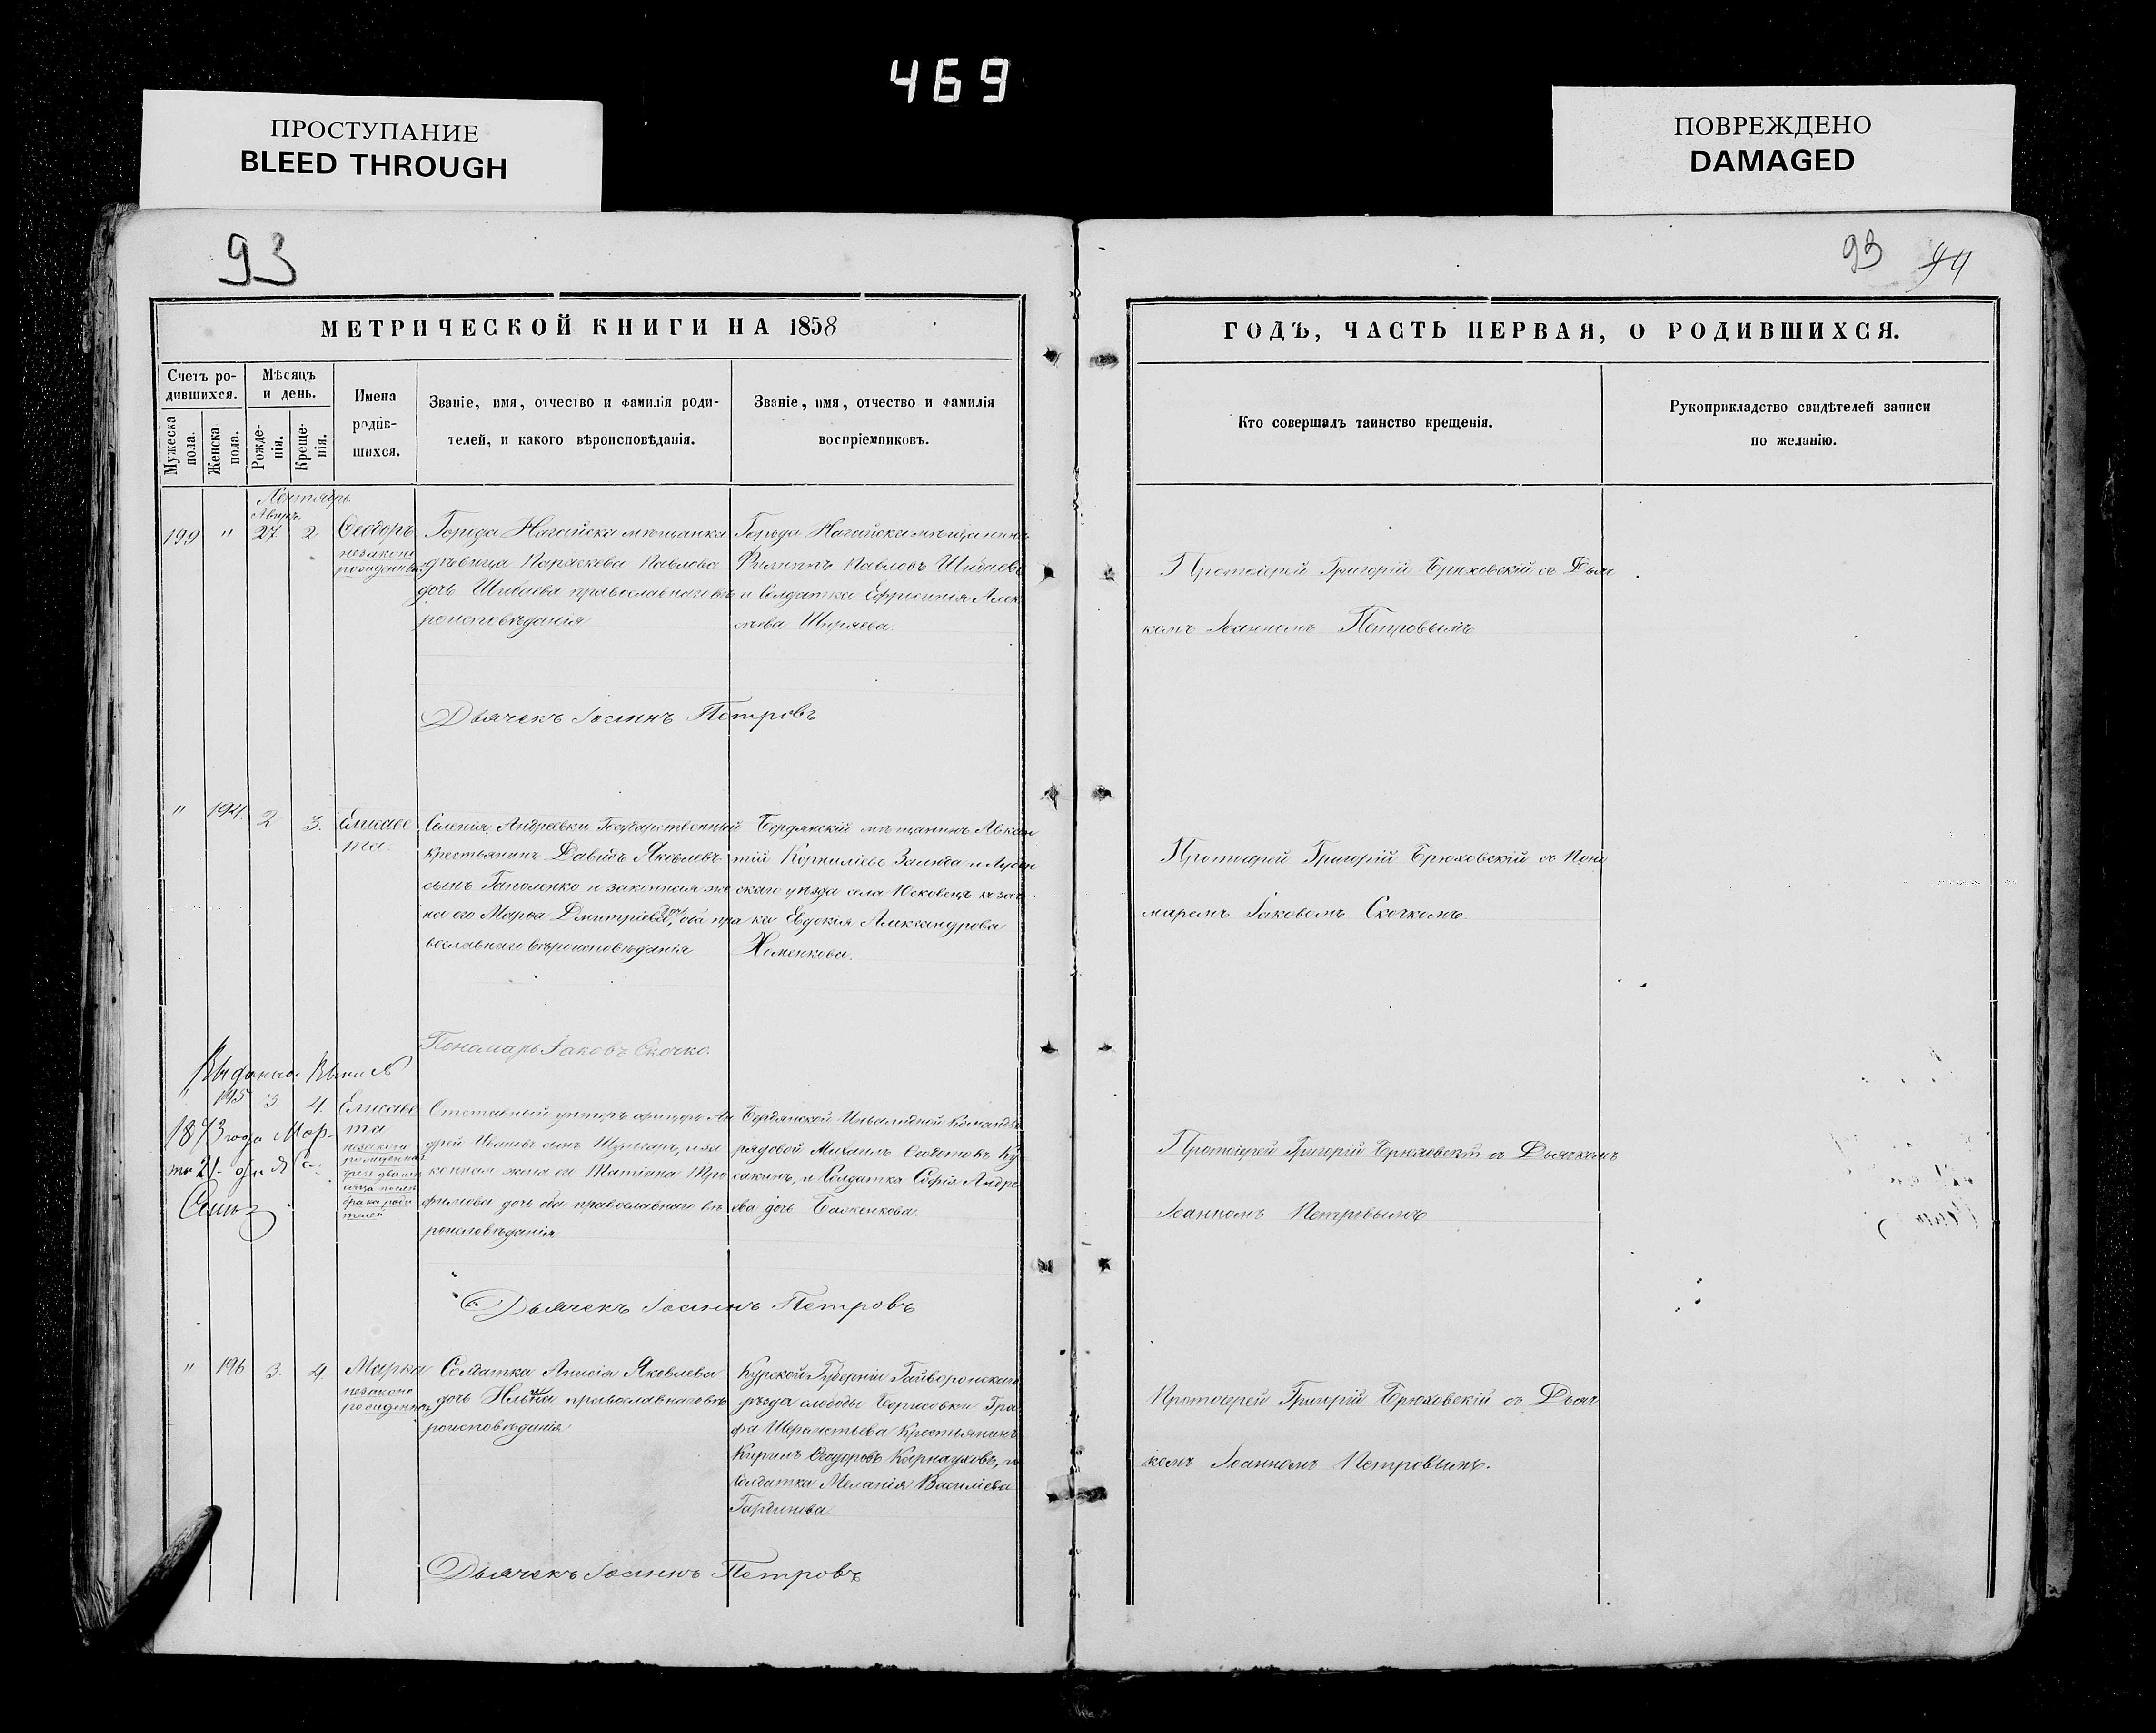 469
ПРОСТУПАНИЕ
BLEED THROUGH
ПОВРЕЖДЕНО
DAMAGED
93
93 94
МЕТРИЧЕСКОЙ КНИГИ НА 1858
ГОДЪ, ЧАСТЬ ПЕРВАЯ, О РОДИВШИХСЯ.
Счетъ ро-
дившихся.
Мужеска
пола.
Женска
пола.
Мѣсяцъ
и день.
Рожде-
нія.
Креще-
нія.
Имена
родив-
шихся.
Званіе, имя, отчество и фамилія роди-
телей, и какого вѣроисповѣданія.
Званіе, имя, отчество и фамилія
воспріемниковъ.
Кто совершалъ таинство крещенія.
Рукоприкладство свидѣтелей записи
по желанію.
199 " 27 2.
Ѳеодоръ
незаконо
Города Нагайска мѣщанка
дѣвица Параскева Павлова
дочь Шибаева православнаго вѣ
роисповѣданія
Города Нагайска мѣщанинъ
Филиппъ Павловъ Шибаевъ
и Солдатка Ефросинія Алек
Ширяева.
Протоіерей Григорій Брюховскій съ Дьяч
комъ Іоанномъ Петровымъ
Дьячекъ Іоаннъ Петровъ
" 194 2 3.
Елисаве
та
Селенія Андреевки Государственный
крестьянинъ Давидъ Яковлевъ
сынъ Гаполенко и законная же
на его Марфа Дмитріева дочь, оба пра
вославнаго вѣроисповѣданія
Бердянскій мѣщанинъ Авксен
тій Корниліевъ
скаго уѣзда села козач
ка Евдокія Александрова
Хоменкова.
Протоіерей Григорій Брюховскій съ Поно
маремъ Іаковомъ Скочкомъ.
Пономарь Іаковъ Скочко.
" 195 3 4.
1873 года Мар-
та 21-
Елисаве
та
Отставный унтеръ офицеръ Ан
дрей Ивановъ сынъ и за
конная жена его Татіана Тро
фимова дочь оба православнаго вѣ
роисповѣданія
Бердянской Инвалидной Команды
рядовой Михаилъ
и Солдатка Софія Андре
ева дочь Баженкова.
Протоіерей Григорій Брюховскій съ Дьячкомъ
Іоанномъ Петровымъ
Дьячекъ Іоаннъ Петровъ
" 196 3. 4.
незаконо
Солдатка Анисія Яковлева
дочь православнаго вѣ
роисповѣданія
Курской Губерніи Гайворонскаго
уѣзда слободы Борисовки Гра
фа Шереметьева Крестьянинъ
Кирилъ Ѳеодоровъ Карнауховъ, и
Солдатка Меланія Василіева
Протоіерей Григорій Брюховскій съ Дьяч
комъ Іоанномъ Петровымъ.
Дьячекъ Іоаннъ Петровъ